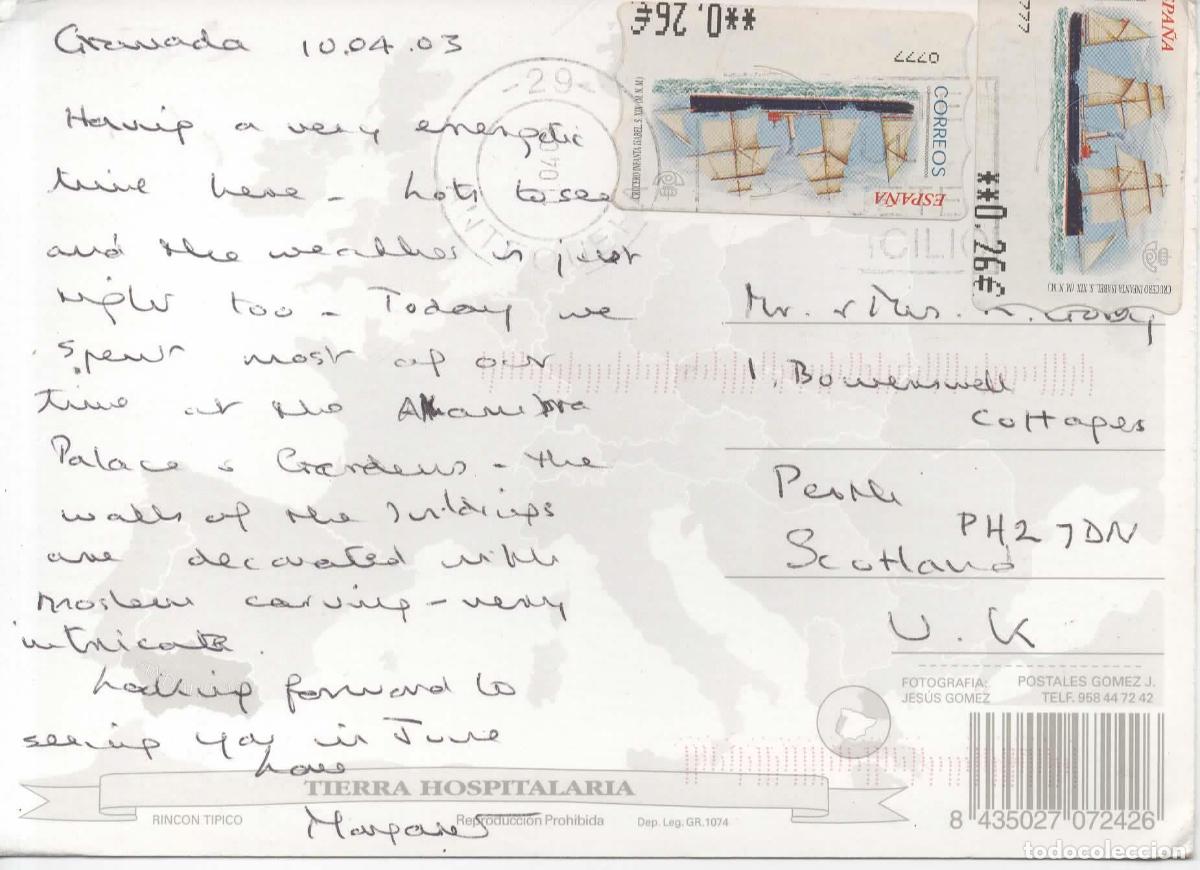 Granada 10.04.03
Having a very energetic
time here - lots to see
and the weather is just
right too - Today we
spent most of our
time at the Alhambra
Palace & Gardens - the
walls of the buildings
are decorated with
Moslem carving - very
intricate.
Looking forward to
seeing you in June
Love
Margaret
**0,26€
0777
CORREOS
ESPAÑA
CRUCERO INFANTA ISABEL. S. XIX (M. N. M.)
0777
ESPAÑA
**0,26€
CRUCERO INFANTA ISABEL. S. XIX (M. N. M.)
-29-
Mr. & Mrs.
1, Bowerswell
Cottages
Perth
PH2 7DN
Scotland
U.K
FOTOGRAFIA:
JESÚS GOMEZ
POSTALES GOMEZ J.
TELF. 958 44 72 42
8 435027 072426
TIERRA HOSPITALARIA
RINCON TIPICO
Reproducción Prohibida
Dep. Leg. GR.1074
todocoleccion